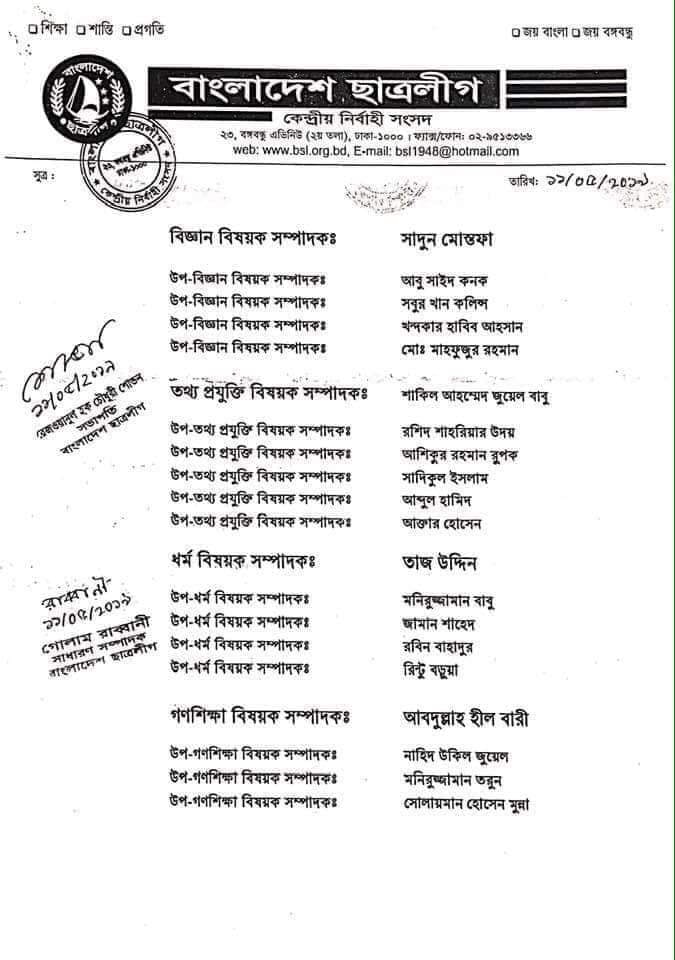 □ শিক্ষা □ শান্তি □ প্রগতি
□ জয় বাংলা □ জয় বঙ্গবন্ধু
বাংলাদেশ
ছাত্রলীগ
বাংলাদেশ ছাত্রলীগ
কেন্দ্রীয় নির্বাহী সংসদ
২৩, বঙ্গবন্ধু এভিনিউ (২য় তলা), ঢাকা-১০০০ । ফ্যাক্স/ফোন: ০২-৯৫১৩৩৬৬
web: www.bsl.org.bd, E-mail: bsl1948@hotmail.com
বাংলাদেশ ছাত্রলীগ
২৩, বঙ্গবন্ধু এভিনিউ
ঢাকা-১০০০
কেন্দ্রীয় নির্বাহী সংসদ
সূত্র :
তারিখ: ১১/০৫/২০১৯
বিজ্ঞান বিষয়ক সম্পাদকঃ সাদুন মোস্তফা
উপ-বিজ্ঞান বিষয়ক সম্পাদকঃ আবু সাইদ কনক
উপ-বিজ্ঞান বিষয়ক সম্পাদকঃ সবুর খান কলিন্স
উপ-বিজ্ঞান বিষয়ক সম্পাদকঃ খন্দকার হাবিব আহসান
উপ-বিজ্ঞান বিষয়ক সম্পাদকঃ মোঃ মাহফুজুর রহমান
১১/০৫/২০১৯
রেজওয়ানুল হক চৌধুরী শোভন
সভাপতি
বাংলাদেশ ছাত্রলীগ
তথ্য প্রযুক্তি বিষয়ক সম্পাদকঃ শাকিল আহম্মেদ জুয়েল বাবু
উপ-তথ্য প্রযুক্তি বিষয়ক সম্পাদকঃ রশিদ শাহরিয়ার উদয়
উপ-তথ্য প্রযুক্তি বিষয়ক সম্পাদকঃ আশিকুর রহমান রুপক
উপ-তথ্য প্রযুক্তি বিষয়ক সম্পাদকঃ সাদিকুল ইসলাম
উপ-তথ্য প্রযুক্তি বিষয়ক সম্পাদকঃ আব্দুল হামিদ
উপ-তথ্য প্রযুক্তি বিষয়ক সম্পাদকঃ আক্তার হোসেন
ধর্ম বিষয়ক সম্পাদকঃ তাজ উদ্দিন
উপ-ধর্ম বিষয়ক সম্পাদকঃ মনিরুজ্জামান বাবু
উপ-ধর্ম বিষয়ক সম্পাদকঃ জামান শাহেদ
উপ-ধর্ম বিষয়ক সম্পাদকঃ রবিন বাহাদুর
উপ-ধর্ম বিষয়ক সম্পাদকঃ রিন্টু বড়ুয়া
রাব্বানী
১১/০৫/২০১৯
গোলাম রাব্বানী
সাধারণ সম্পাদক
বাংলাদেশ ছাত্রলীগ
গণশিক্ষা বিষয়ক সম্পাদকঃ আবদুল্লাহ হীল বারী
উপ-গণশিক্ষা বিষয়ক সম্পাদকঃ নাহিদ উকিল জুয়েল
উপ-গণশিক্ষা বিষয়ক সম্পাদকঃ মনিরুজ্জামান তরুন
উপ-গণশিক্ষা বিষয়ক সম্পাদকঃ সোলায়মান হোসেন মুন্না